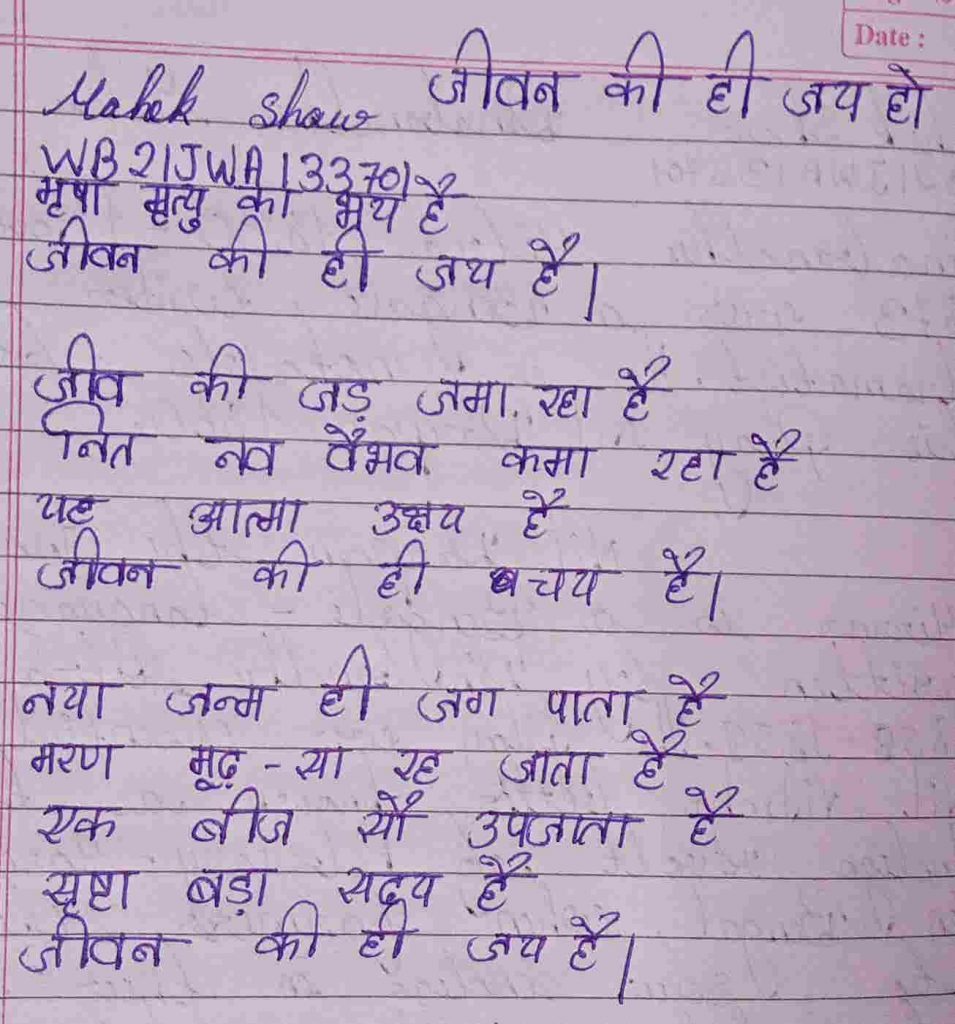 Date :
जीवन की ही जय हो
Mahek Shaw
WB21JWA133701
मृषा मृत्यु का भय है
जीवन की ही जय है।
जीव की जड़ जमा रहा है
नित नव वैभव कमा रहा है
यह आत्मा अक्षय है
जीवन की ही चय है।
नया जन्म ही जग पाता है
मरण मूढ़ - सा रह जाता है
एक बीज सौ उपजाता है
सृष्टा बड़ा सदय है
जीवन की ही जय है।